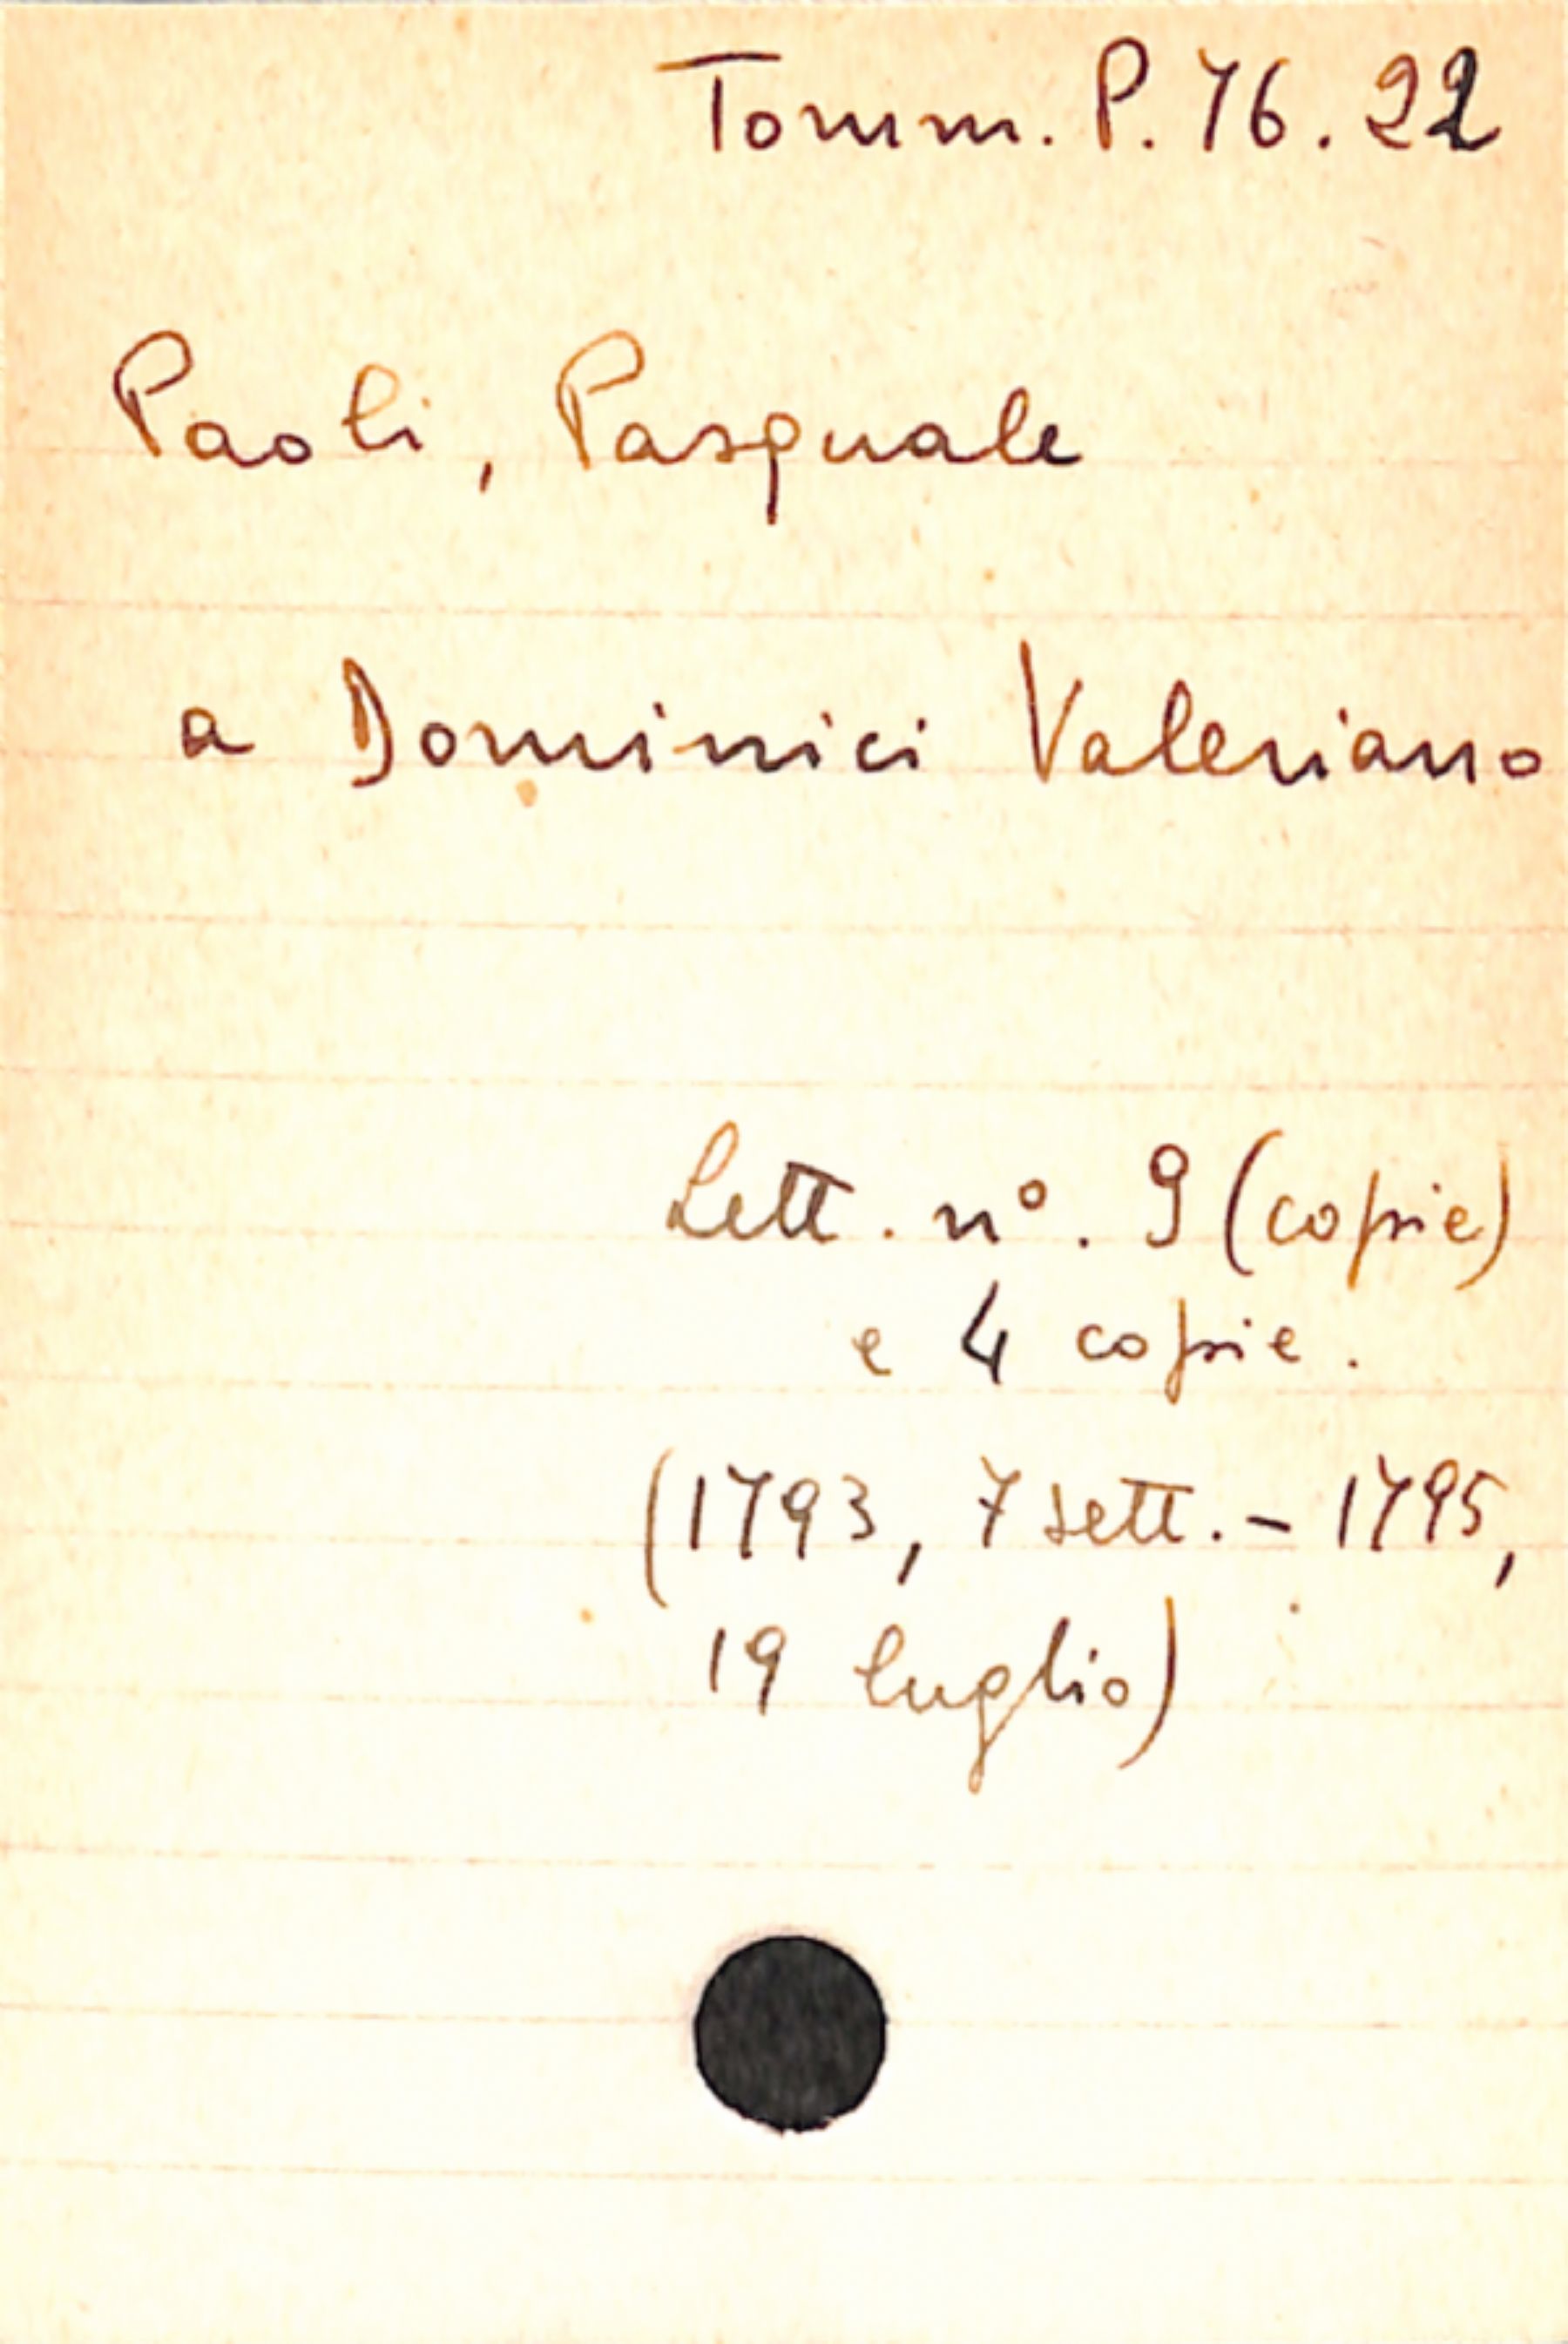 Tomm. P. 76. 22
Paoli, Pasquale
a Dominici Valeriano
Lett. n°. 9 (copie)
e 4 copie.
(1793, 7 sett. - 1795,
19 luglio)